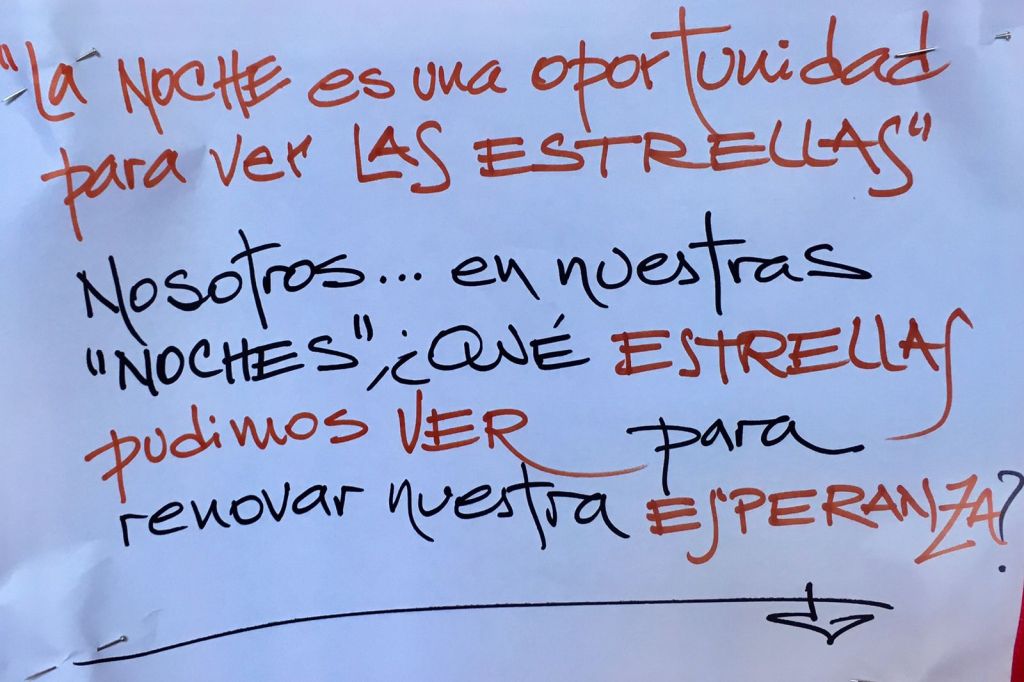 "La NOCHE es una oportunidad
para ver LAS ESTRELLAS"
Nosotros... en nuestras
"NOCHES", ¿QUÉ ESTRELLAS
pudimos VER para
renovar nuestra ESPERANZA?